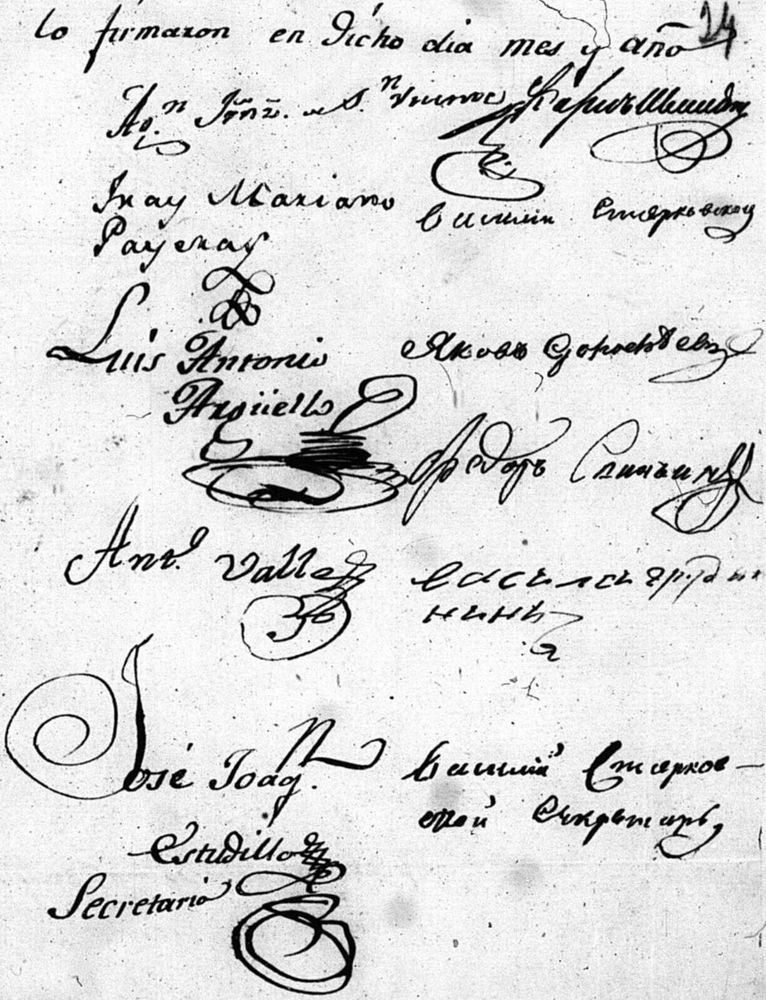 lo firmaron en dicho dia mes y año
24
Ag.n Fernz. de S.n Vicente
Карлъ Шмидтъ
Fray Mariano
Payeras
Василій Старковской
Luis Antonio
Argüello
Яковъ Дорофѣевъ
Федоръ
Ant.o Valle
василеи грудинь
нинъ
José Joaq.n
Estudillo
Secretario
Василій Старков-
ской Секретарь